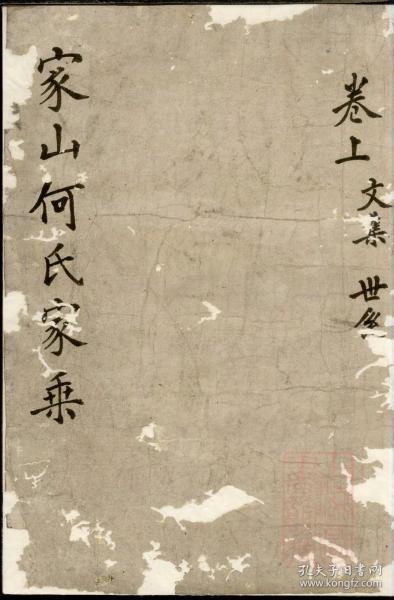 卷上
文集 世系
家山何氏家乘
孔夫子旧书网
www.kongfz.com